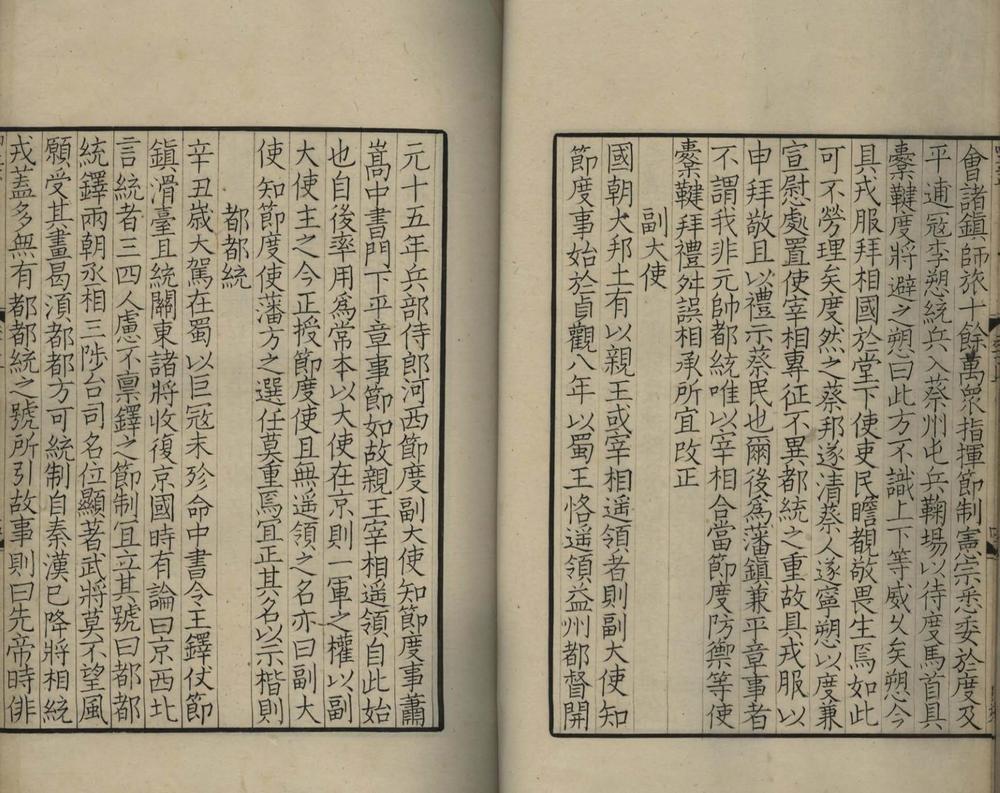 會諸鎮師旅十餘萬衆指揮節制憲宗悉委於度及
平逋寇李愬統兵入蔡州屯兵鞠場以待度馬首具
櫜鞬度將避之愬曰此方不識上下等威久矣愬今
具戎服拜相國於堂下使吏民瞻覩敬畏生焉如此
可不勞理矣度然之蔡邦遂清蔡人遂寧愬以度兼
宣慰處置使宰相專征不異都統之重故具戎服以
申拜敬且以禮示蔡民也爾後為藩鎮兼平章事者
不謂我非元帥都統唯以宰相合當節度防禦等使
櫜鞬拜禮舛誤相承所宜改正
副大使
國朝大邦土有以親王或宰相遥領者則副大使知
節度事始於貞觀八年以蜀王恪遥領益州都督開
元十五年兵部侍郎河西節度副大使知節度事蕭
嵩中書門下平章事節如故親王宰相遥領自此始
也自後率用為常本以大使在京則一軍之權以副
大使主之今正授節度使且無遥領之名亦曰副大
使知節度使藩方之選任莫重焉宜正其名以示楷則
都都統
辛丑歳大駕在蜀以巨寇未殄命中書令王鐸仗節
鎮滑臺且統關東諸將收復京國時有論曰京西北
言統者三四人慮不禀鐸之節制宜立其號曰都都
統鐸兩朝丞相三陟台司名位顯著武將莫不望風
願受其畫曷湏都都方可統制自秦漢已降將相統
戎蓋多無有都都統之號所引故事則曰先帝時俳